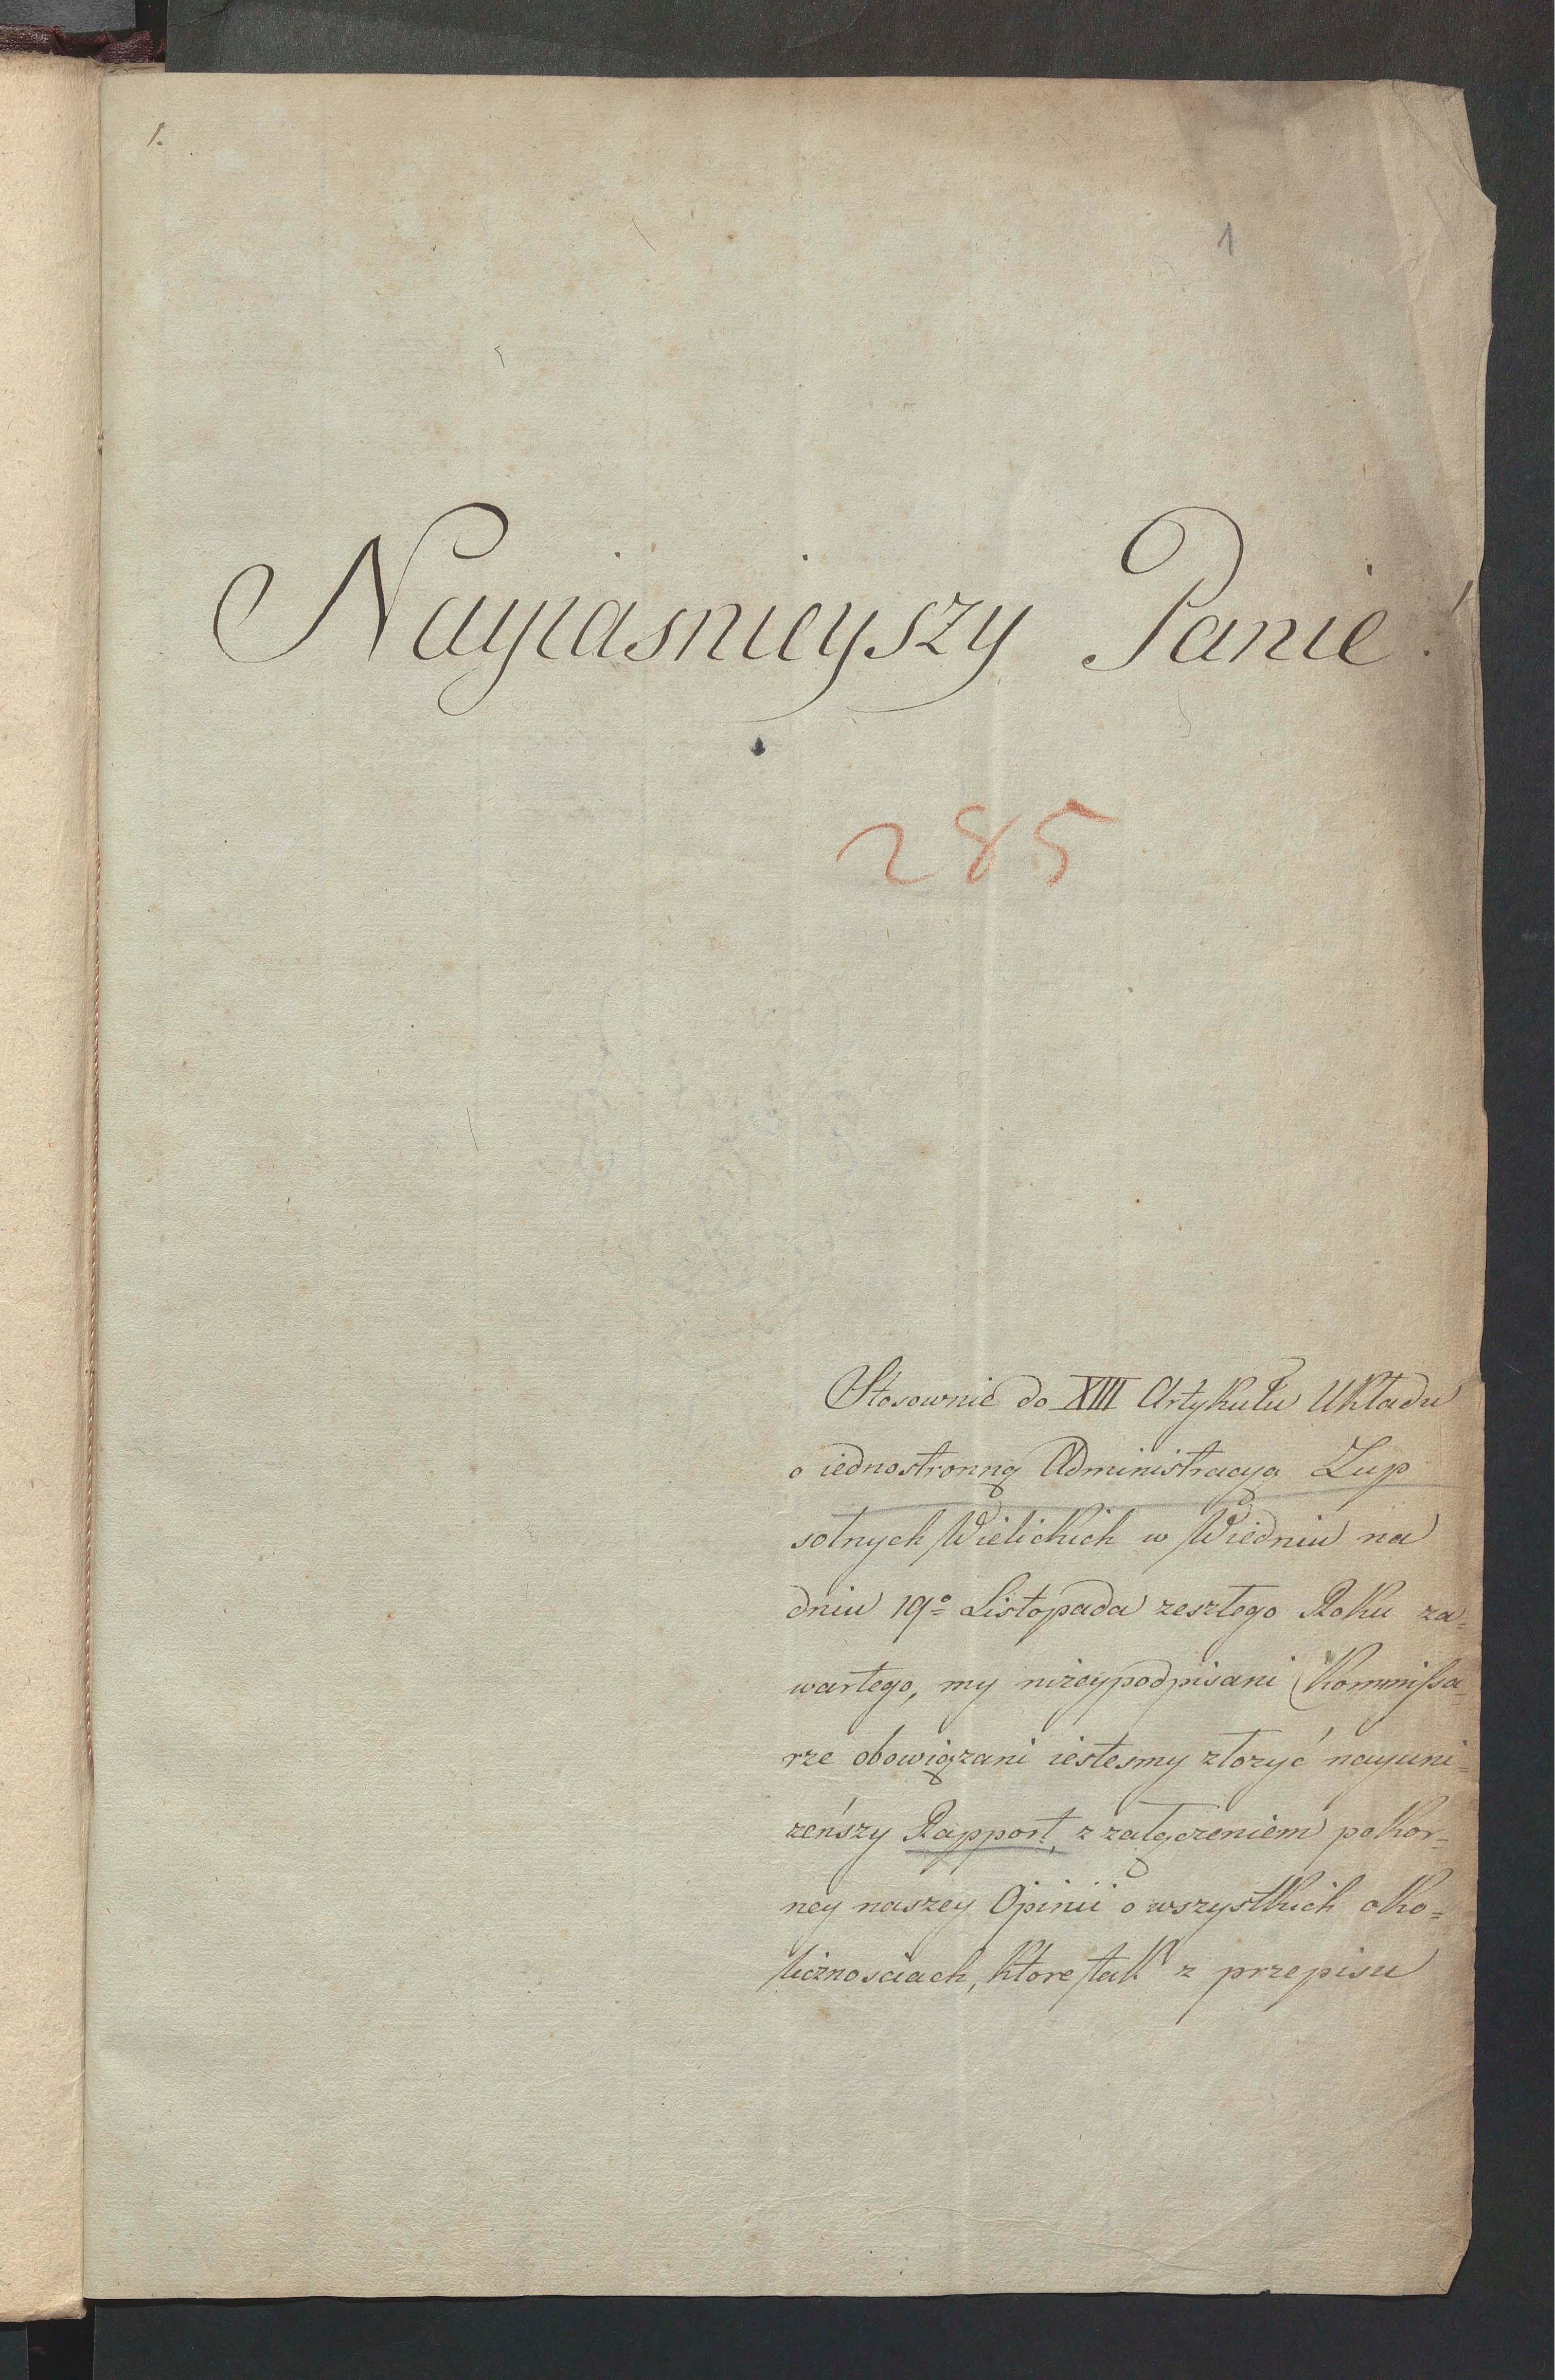 1.
1
Nayiasnieyszy Panie!
285
Stosownie do XIII Artykułu Układu
o iednostronną Administracyą Zup
solnych Wielickich w Wiedniu na
dniu 19º Listopada zeszłego Roku za=
wartego, my niżeypodpisani Kommissa=
rze obowiązani iestesmy złożyć nayuni=
żeńszy Rapport, z załączeniem pokor=
ney naszey Opinii o wszystkich oko=
licznosciach, które tak z przepisu